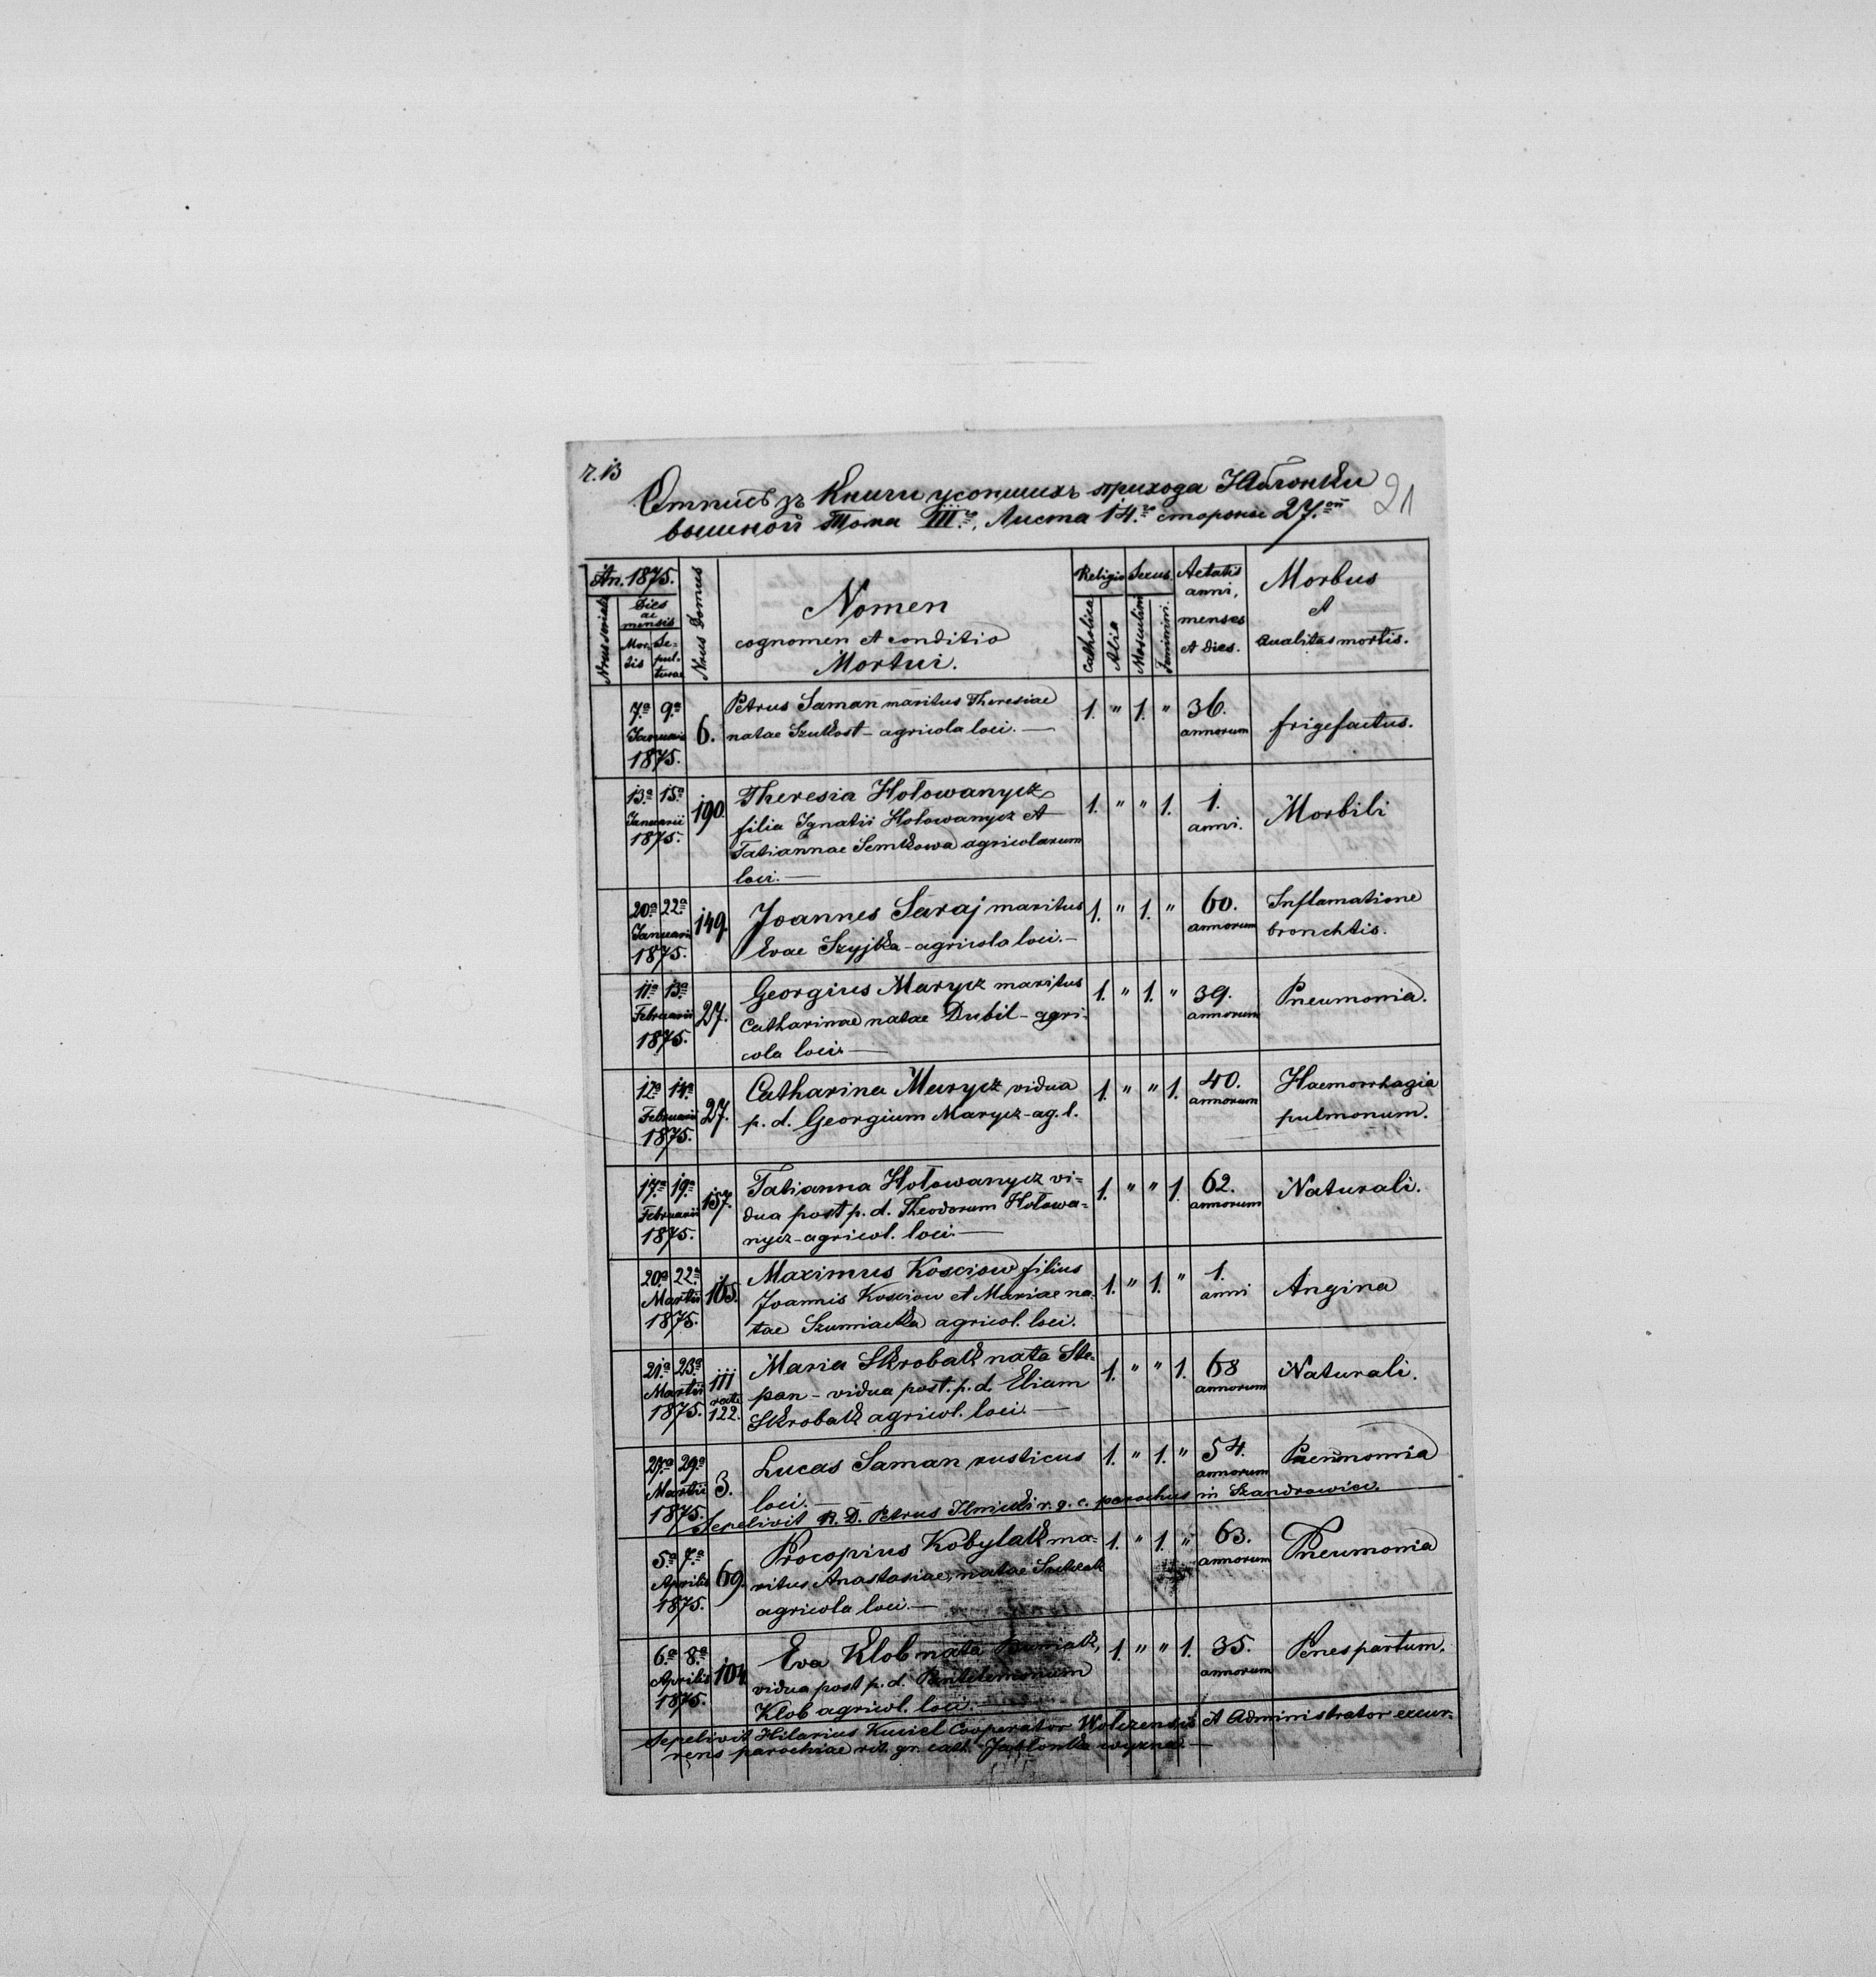 ч. 13
Отпись зъ Книги усопшихъ прихода Яблонки 21
вышной Тома III.го, Листа 14.го стороны 27.ой
An. 1875.
Nrus serialis
Dies ac mensis
Mortis
Sepulturae
Nrus Domus
Nomen
cognomen et conditio
Mortui.
Religio
Catholica
Alia
Sexus
Masculini
Feminini.
Aetatis
anni,
menses
et dies.
Morbus
et
qualitas mortis.
7.a 9.a Januarii 1875. 6. Petrus Saman maritus Theresiae 1. " 1. " 36. annorum frigefactus.
natae Szutkost - agricola loci. —
13.a 15.a Januarii 1875. 190. Theresia Hołowanycz 1. " " 1. 1. anni. Morbili
filia Ignatii Hołowanycz et
Tatiannae Semkowa agricolarum
loci. —
20.a 22.a Januarii 1875. 149. Joannes Saraj maritus 1. " 1. " 60. annorum Inflamatione
Evae Szyjka - agricola loci. — bronchtis.
11.a 13.a Februarii 1875. 27. Georgius Marycz maritus 1. " 1. " 39. annorum Pneumonia.
Catharinae natae Dubil - agri-
cola loci. —
12.a 14.a Februarii 1875. 27. Catharina Marycz vidua 1. " " 1. 40. annorum Haemorrhagia
p. d. Georgium Marycz - ag. l. pulmonum.
17.a 19.a Februarii 1875. 157. Tatianna Hołowanycz vi- 1. " " 1. 62. annorum Naturali.
dua post p. d. Theodorum Hołowa-
nycz - agricol. loci. —
20.a 22.a Martii 1875. 165. Maximus Kosciow filius 1. " 1. " 1. anni Angina
Joannis Kosciow et Mariae na-
tae Szumiacka agricol. loci.
21.a 23.a Martii 1875. 111 rate 122. Maria Skrobak nata Ste- 1. " " 1. 68 annorum Naturali.
pan - vidua post. p. d. Eliam
Skrobak agricol. loci. —
27.a 29.a Martii 1875. 3. Lucas Saman rusticus 1. " 1. " 54. annorum Pneumonia
loci. —
Sepelivit R. D. Petrus Ilnicki r. g. c. parochus in Szandrowiec.
5.a 7.a Aprilis 1875. 69. Procopius Kobylak ma- 1. " 1. " 63. annorum Pneumonia
ritus Anastasiae, natae
agricola loci. —
6.a 8.a Aprilis 1875. 104 Eva Klob nata 1. " " 1. 35. annorum Penes partum.
vidua post p. d. Pantelemonum
Klob agricol. loci. —
Sepelivit Hilarius Kuciel Cooperator Wolczensis et Administrator excur-
rens parochiae rit. gr. cath. Jabłonka wyzna. —